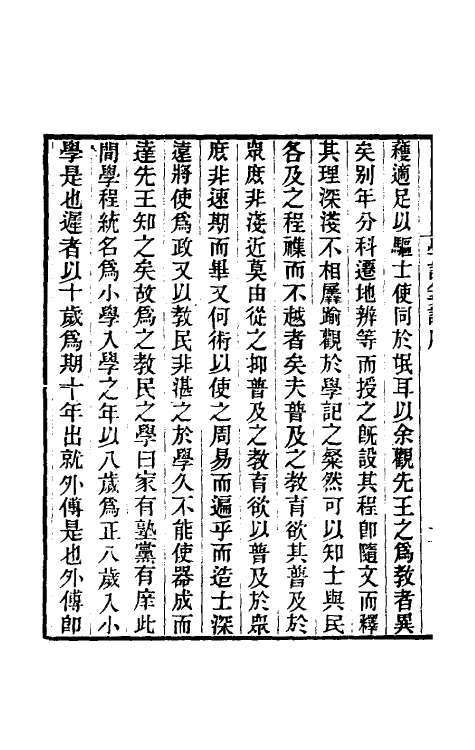 穫適足以驅士使同於氓耳以余觀先王之爲教者異
矣別年分科遷地辨等而授之旣設其程卽隨文而釋
其理深淺不相羼踰觀於學記之粲然可以知士與民
各及之程襍而不越者矣夫普及之教育欲其普及於
衆庶非淺近莫由從之抑普及之教育欲以普及於衆
庶非速期而畢又何術以使之周易而遍乎而造士深
遠將使爲政又以教民非湛之於學久不能使器成而
達先王知之矣故爲之教民之學曰家有塾黨有庠此
間學程統名爲小學入學之年以八歲爲正八歲入小
學是也遲者以十歲爲期十年出就外傅是也外傅卽